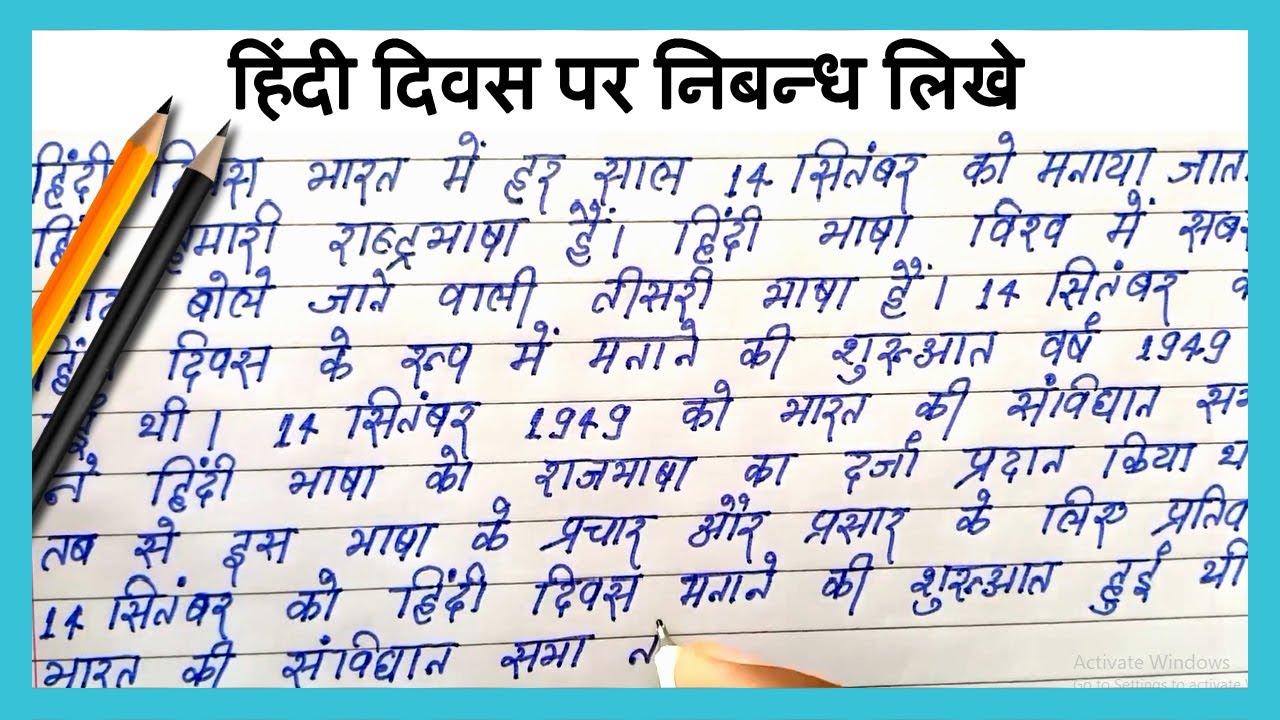 हिंदी दिवस पर निबन्ध लिखे
भारत में हर साल 14 सितंबर को मनाया
राष्ट्रभाषा हैं। हिंदी भाषा विश्व में
बोले जाने वाली तीसरी भाषा हैं। 14 सितंबर
दिवस के रूप में मनाने की शुरूआत वर्ष 1949
थी। 14 सितंबर 1949 को भारत की संविधान
ने हिंदी भाषा को राजभाषा का दर्जा प्रदान किया
तब से इस भाषा के प्रचार और प्रसार के लिए
14 सितंबर को हिंदी दिवस मनाने की शुरूआत हुई थी
भारत की संविधान सभा
Activate Windows